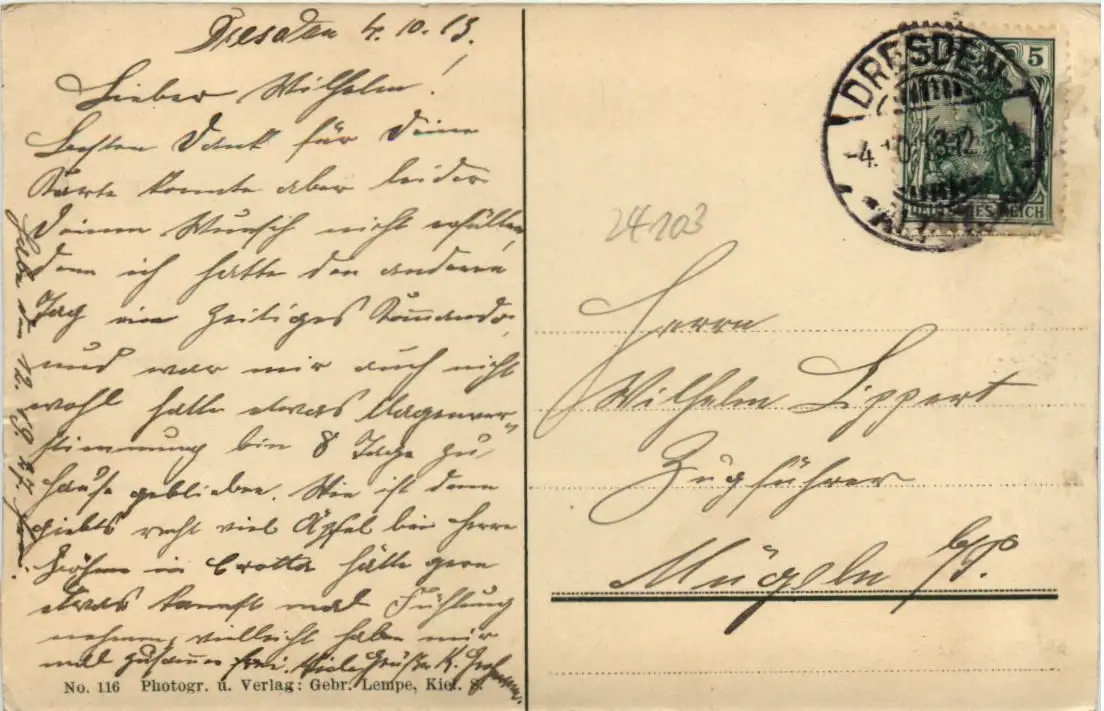 Dresden 4.10.13.
Lieber Wilhelm!
Besten Dank für Deine
Karte konnte aber leider
Deinen Wunsch nicht erfüllen,
denn ich hatte den anderen
Tag ein zeitiges Kommando,
und war mir auch nicht
wohl hatte etwas Magenver-
stimmung bin 8 Tage zu
hause geblieben. Wie ist denn
giebts recht viel Äpfel bei Herrn
in Crotta hätte gern
etwas kannst mal Fühlung
nehmen, vielleicht haben wir
mal zusammen frei. Viele Grüße K.
Habe den 12. 19. 27.
No. 116 Photogr. u. Verlag: Gebr. Lempe, Kiel. S.
DRESDEN
-4.10.13.12
5
DEUTSCHES REICH
24203
Herrn
Wilhelm Lippert
Zugführer
Mügeln b/P.